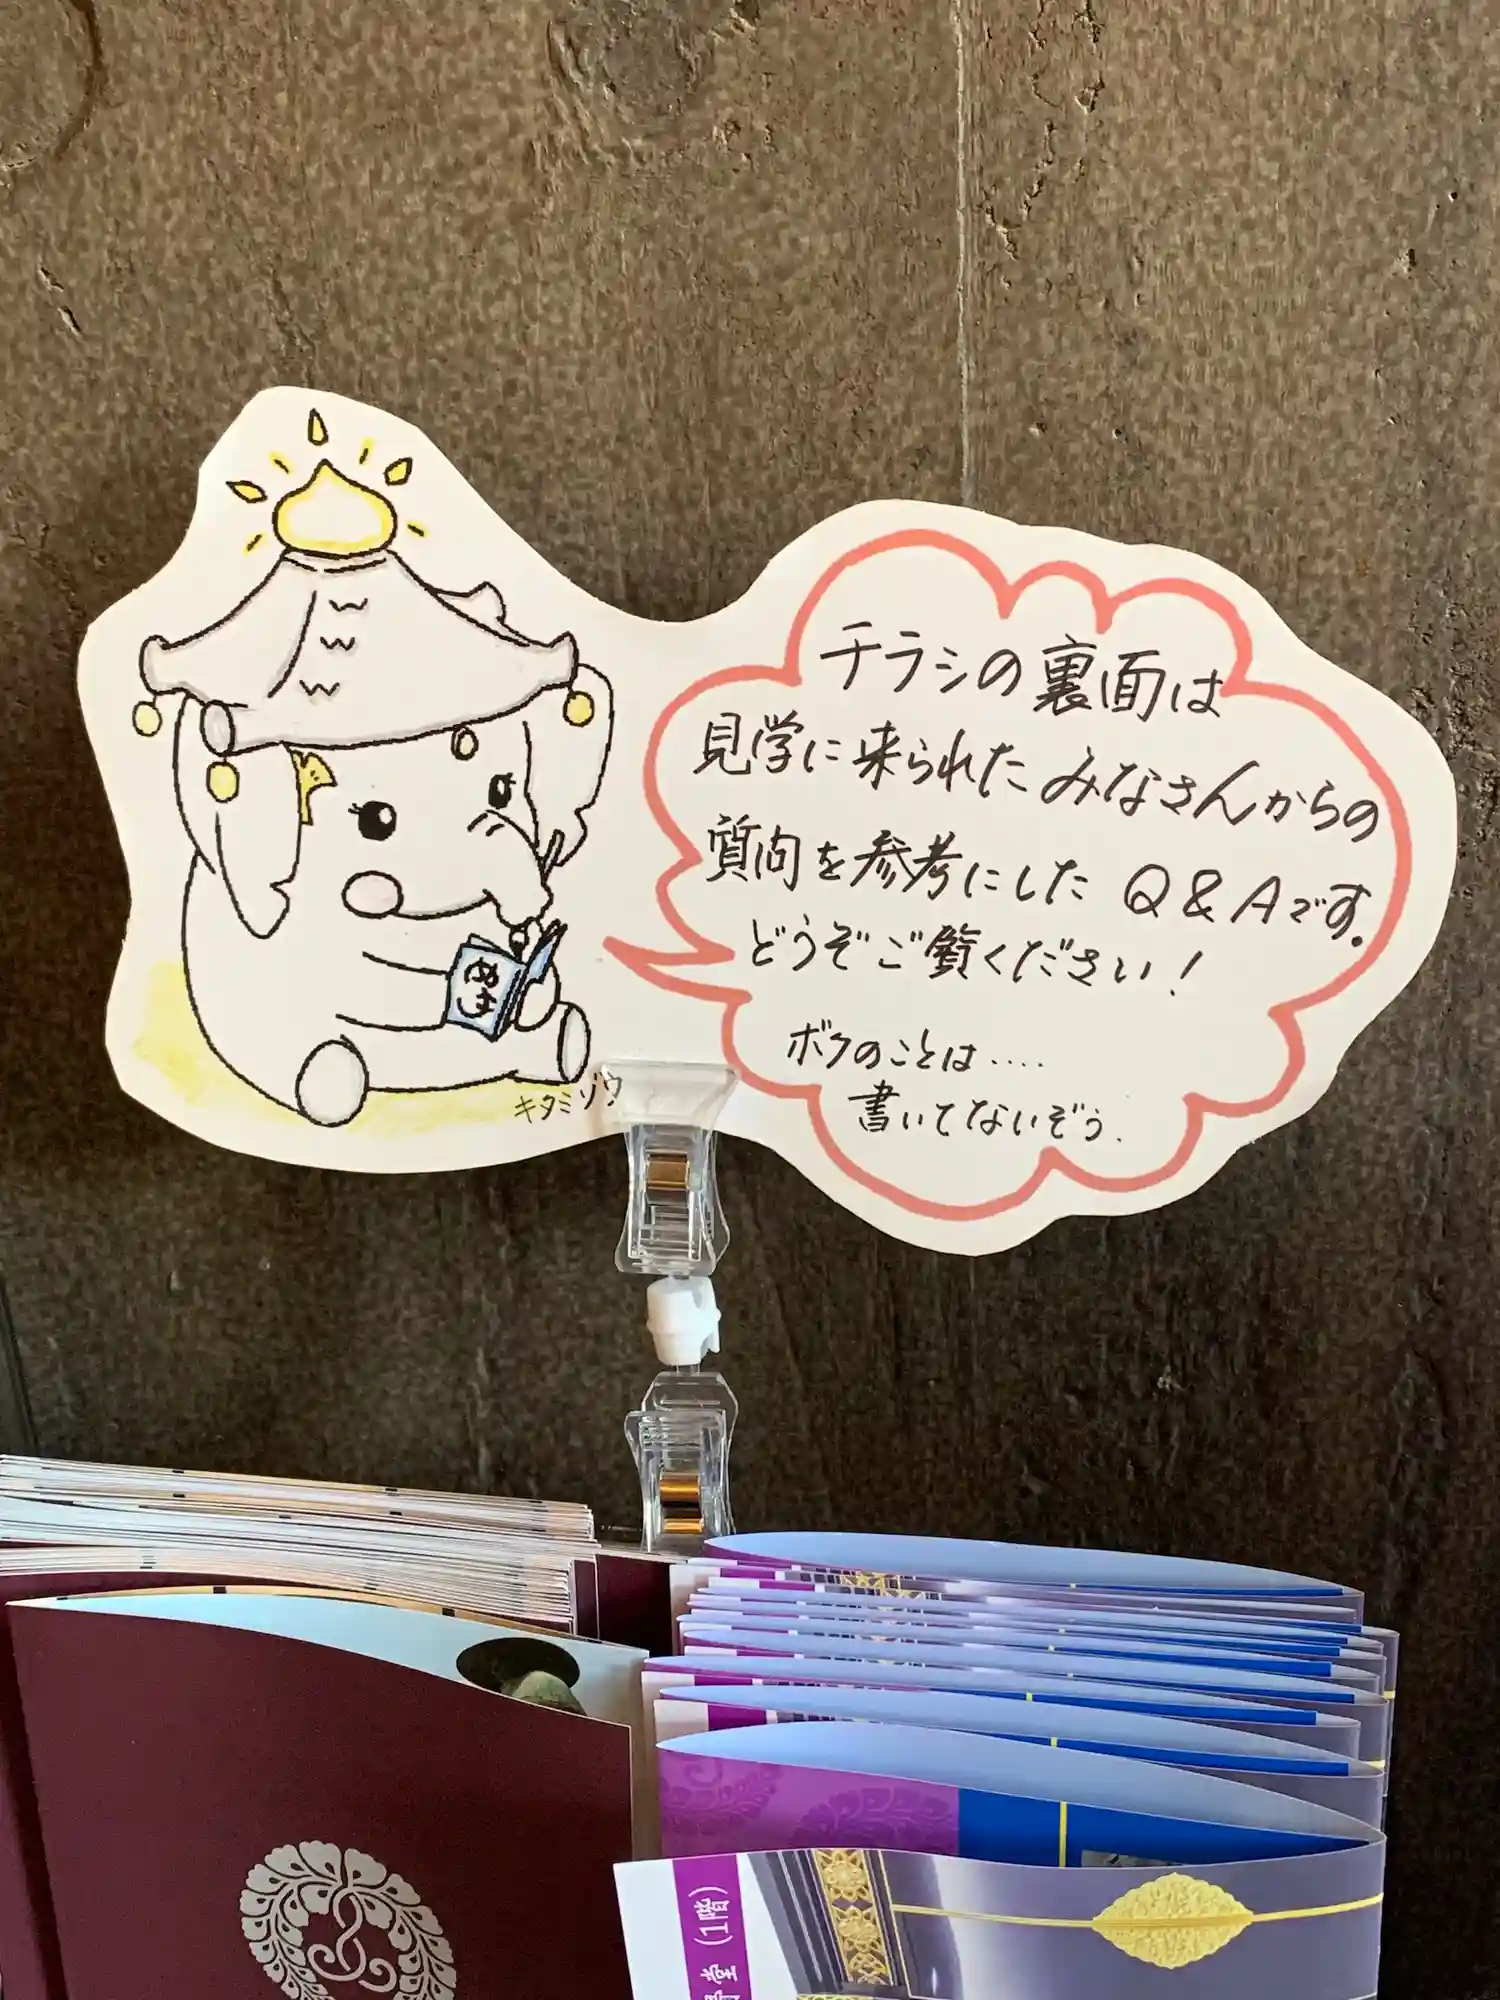 チラシの裏面は
見学に来られたみなさんからの
質問を参考にした Q&Aです。
どうぞご覧ください!
ボクのことは‥‥
書いてないぞぅ.
キタミゾウ
堂 (1階)